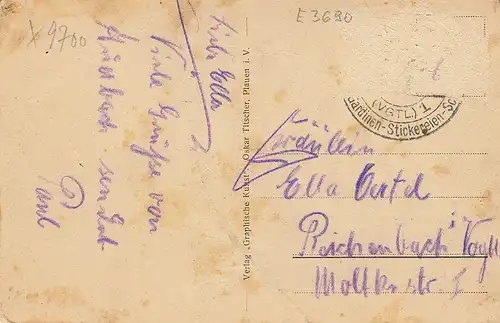 X 9700
E 3690
Liebe Ella
Viele Grüße von
sendet
Paul
Verlag „Graphische Kunst“ Oskar Titscher, Plauen i. V.
(VGTL) 1
Gardinen-Stickereien-
Fräulein
Ella Oertel
Reichenbach i Vogtl
Moltkestr